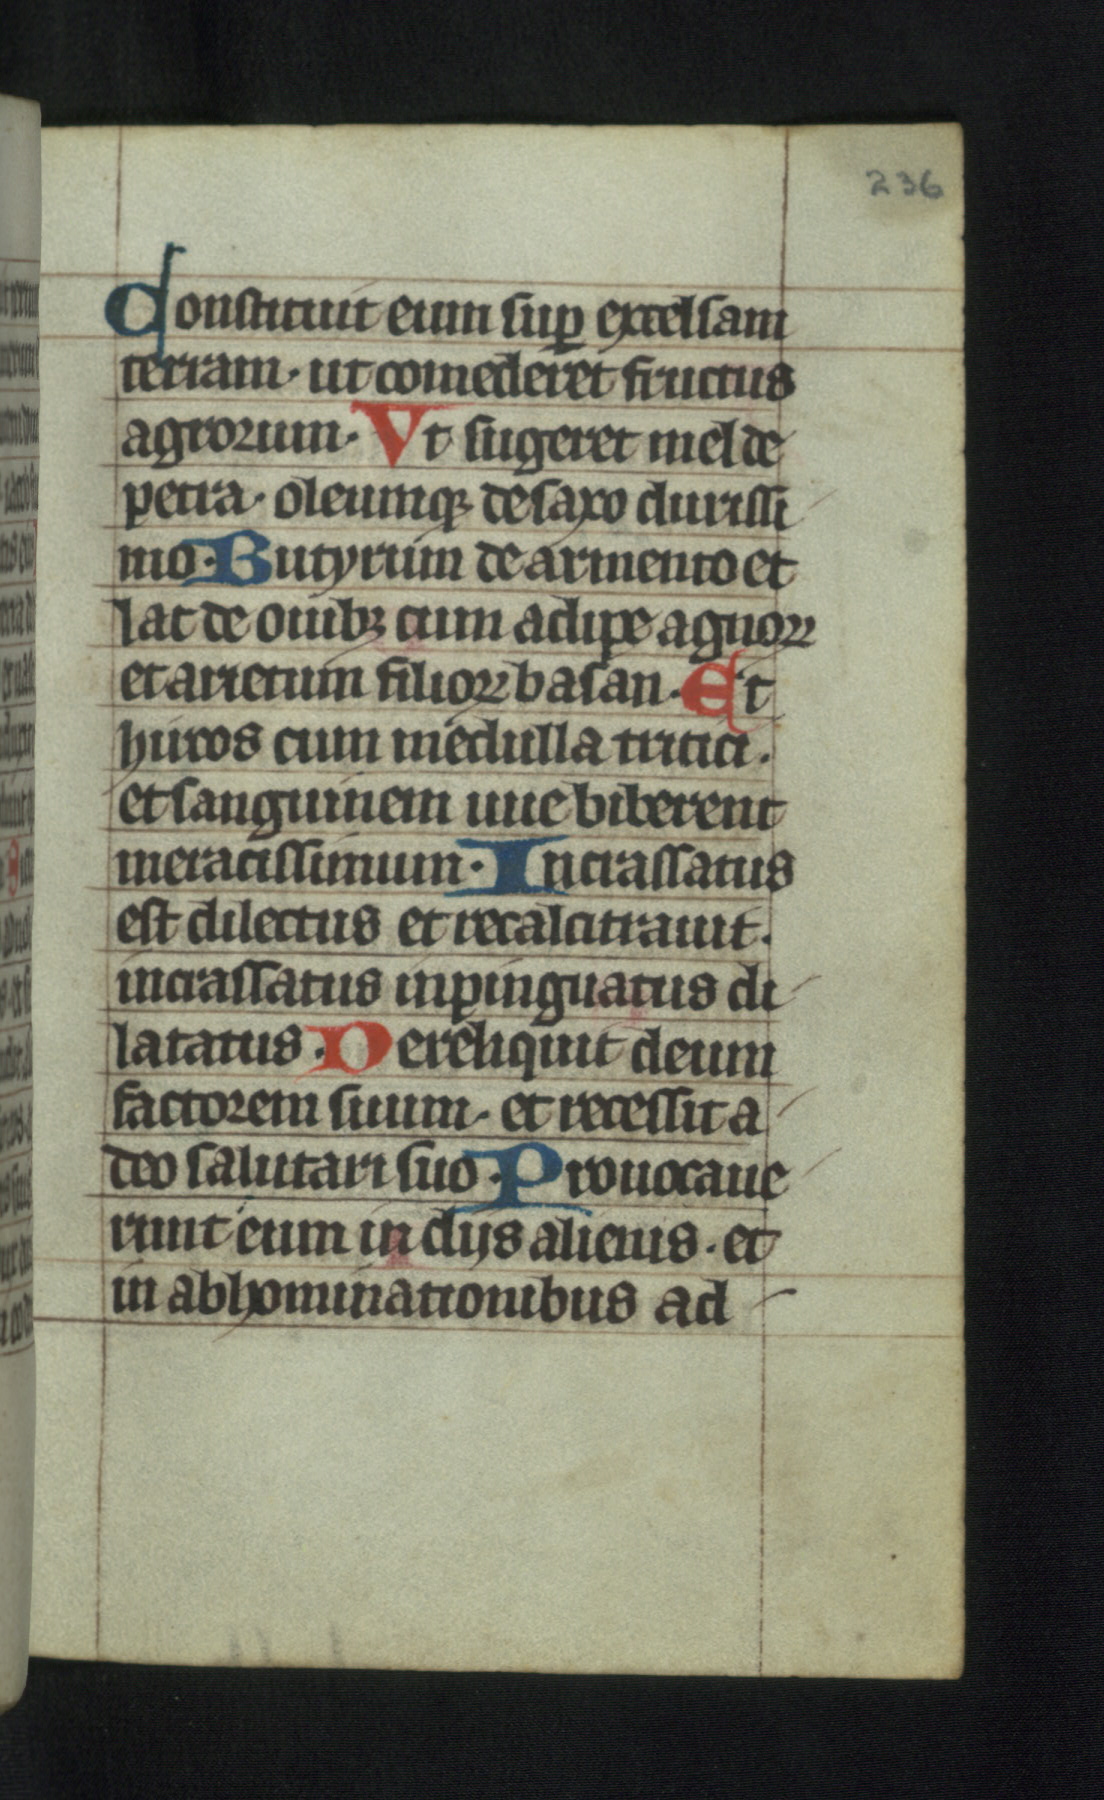 236
Constituit eum sup excelsam
terram · ut comederet fructus
agrorum · Vt sugeret mel de
petra · oleumq; de saxo durissi
mo · Butyrum de armento et
lac de ouib; cum adipe agnoꝝ
et arietum filioꝝ basan · Et
hircos cum medulla tritici ·
et sanguinem uue biberent
meracissimum · Incrassatus
est dilectus et recalcitrauit ·
incrassatus inpinguatus di
latatus · Dereliquit deum
factorem suum · et recessit a
deo salutari suo · Prouocaue
runt eum in dijs alienis · et
in abhominationibus ad